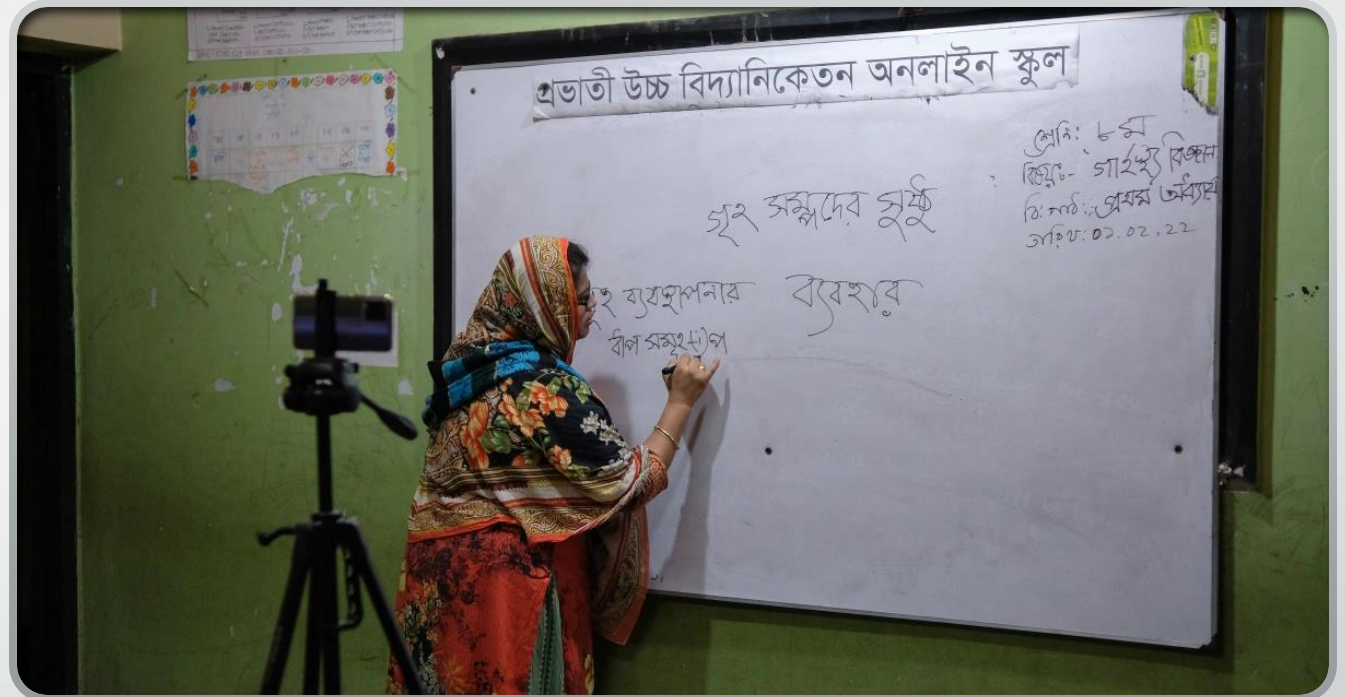 প্রভাতী উচ্চ বিদ্যানিকেতন অনলাইন স্কুল
শ্রেনি: ৮ম
বিষয়ঃ- গার্হস্থ্য বিজ্ঞান
বি: পাঠ: প্রথম অধ্যায়
তারিখ: 02.02.22
গৃহ সম্পদের সুষ্ঠু
ব্যবহার
গৃহ ব্যবস্থাপনার
ধাপ সমূহ